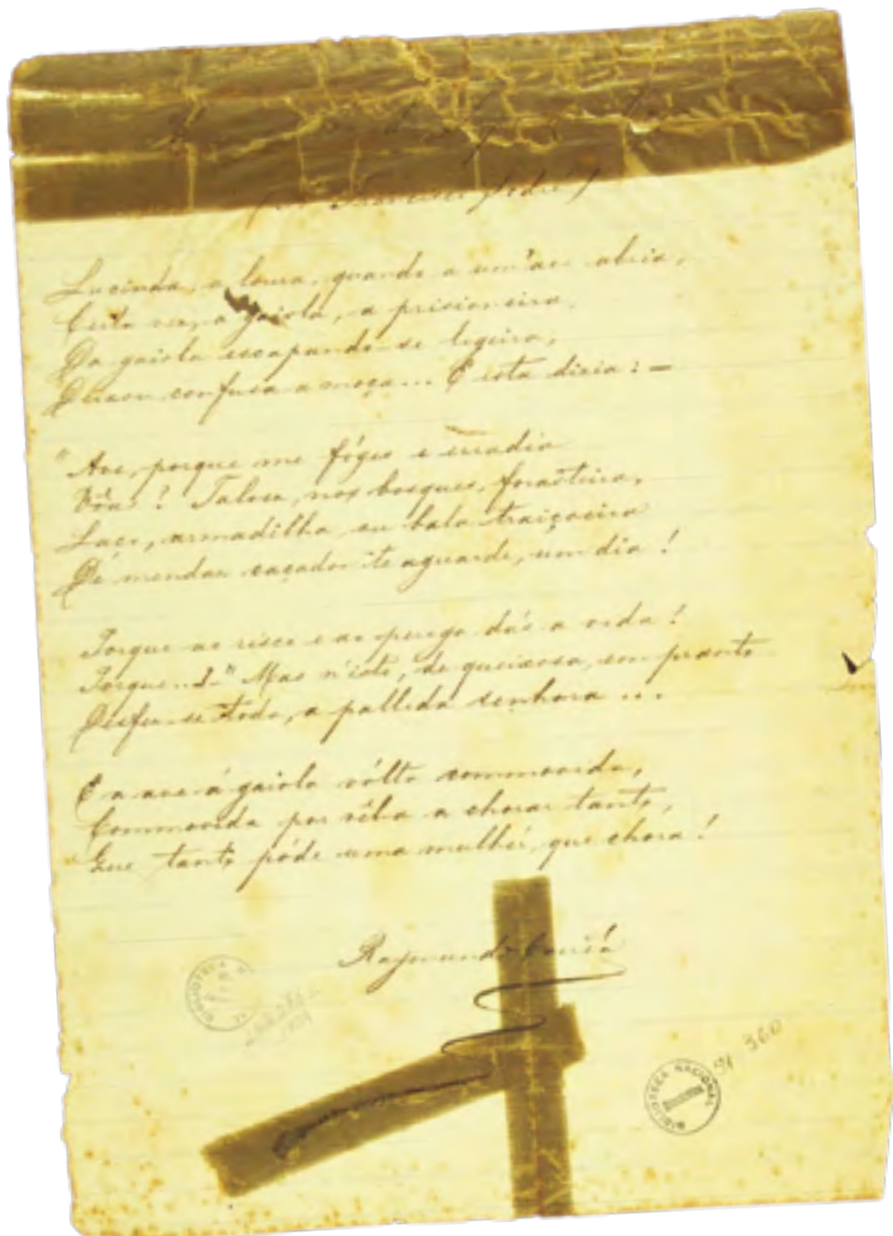 Lucinda, a loura, quando a um'ave abria,
Certa vez, a gaiola, a prisioneira,
Da gaiola escapando-se ligeira,
Deixou confusa a moça... E esta dizia: —
"Ave, porque me fóges e erradia
Vôas? Talvez, nos bosques, forasteira,
Laço, armadilha ou bala traiçoeira
De mendaz caçador te aguarde, um dia!
Porque ao risco e ao perigo dás a vida!
Porque..?" Mas n'isto, de queixosa, em pranto
Desfez-se toda, a pallida senhora...
E a ave á gaiola vólta commovida,
Commovida por vêl-a a chorar tanto,
Que tanto póde uma mulher, que chora!
Raymundo Corrêa
BIBLIOTECA
BIBLIOTECA NACIONAL
360